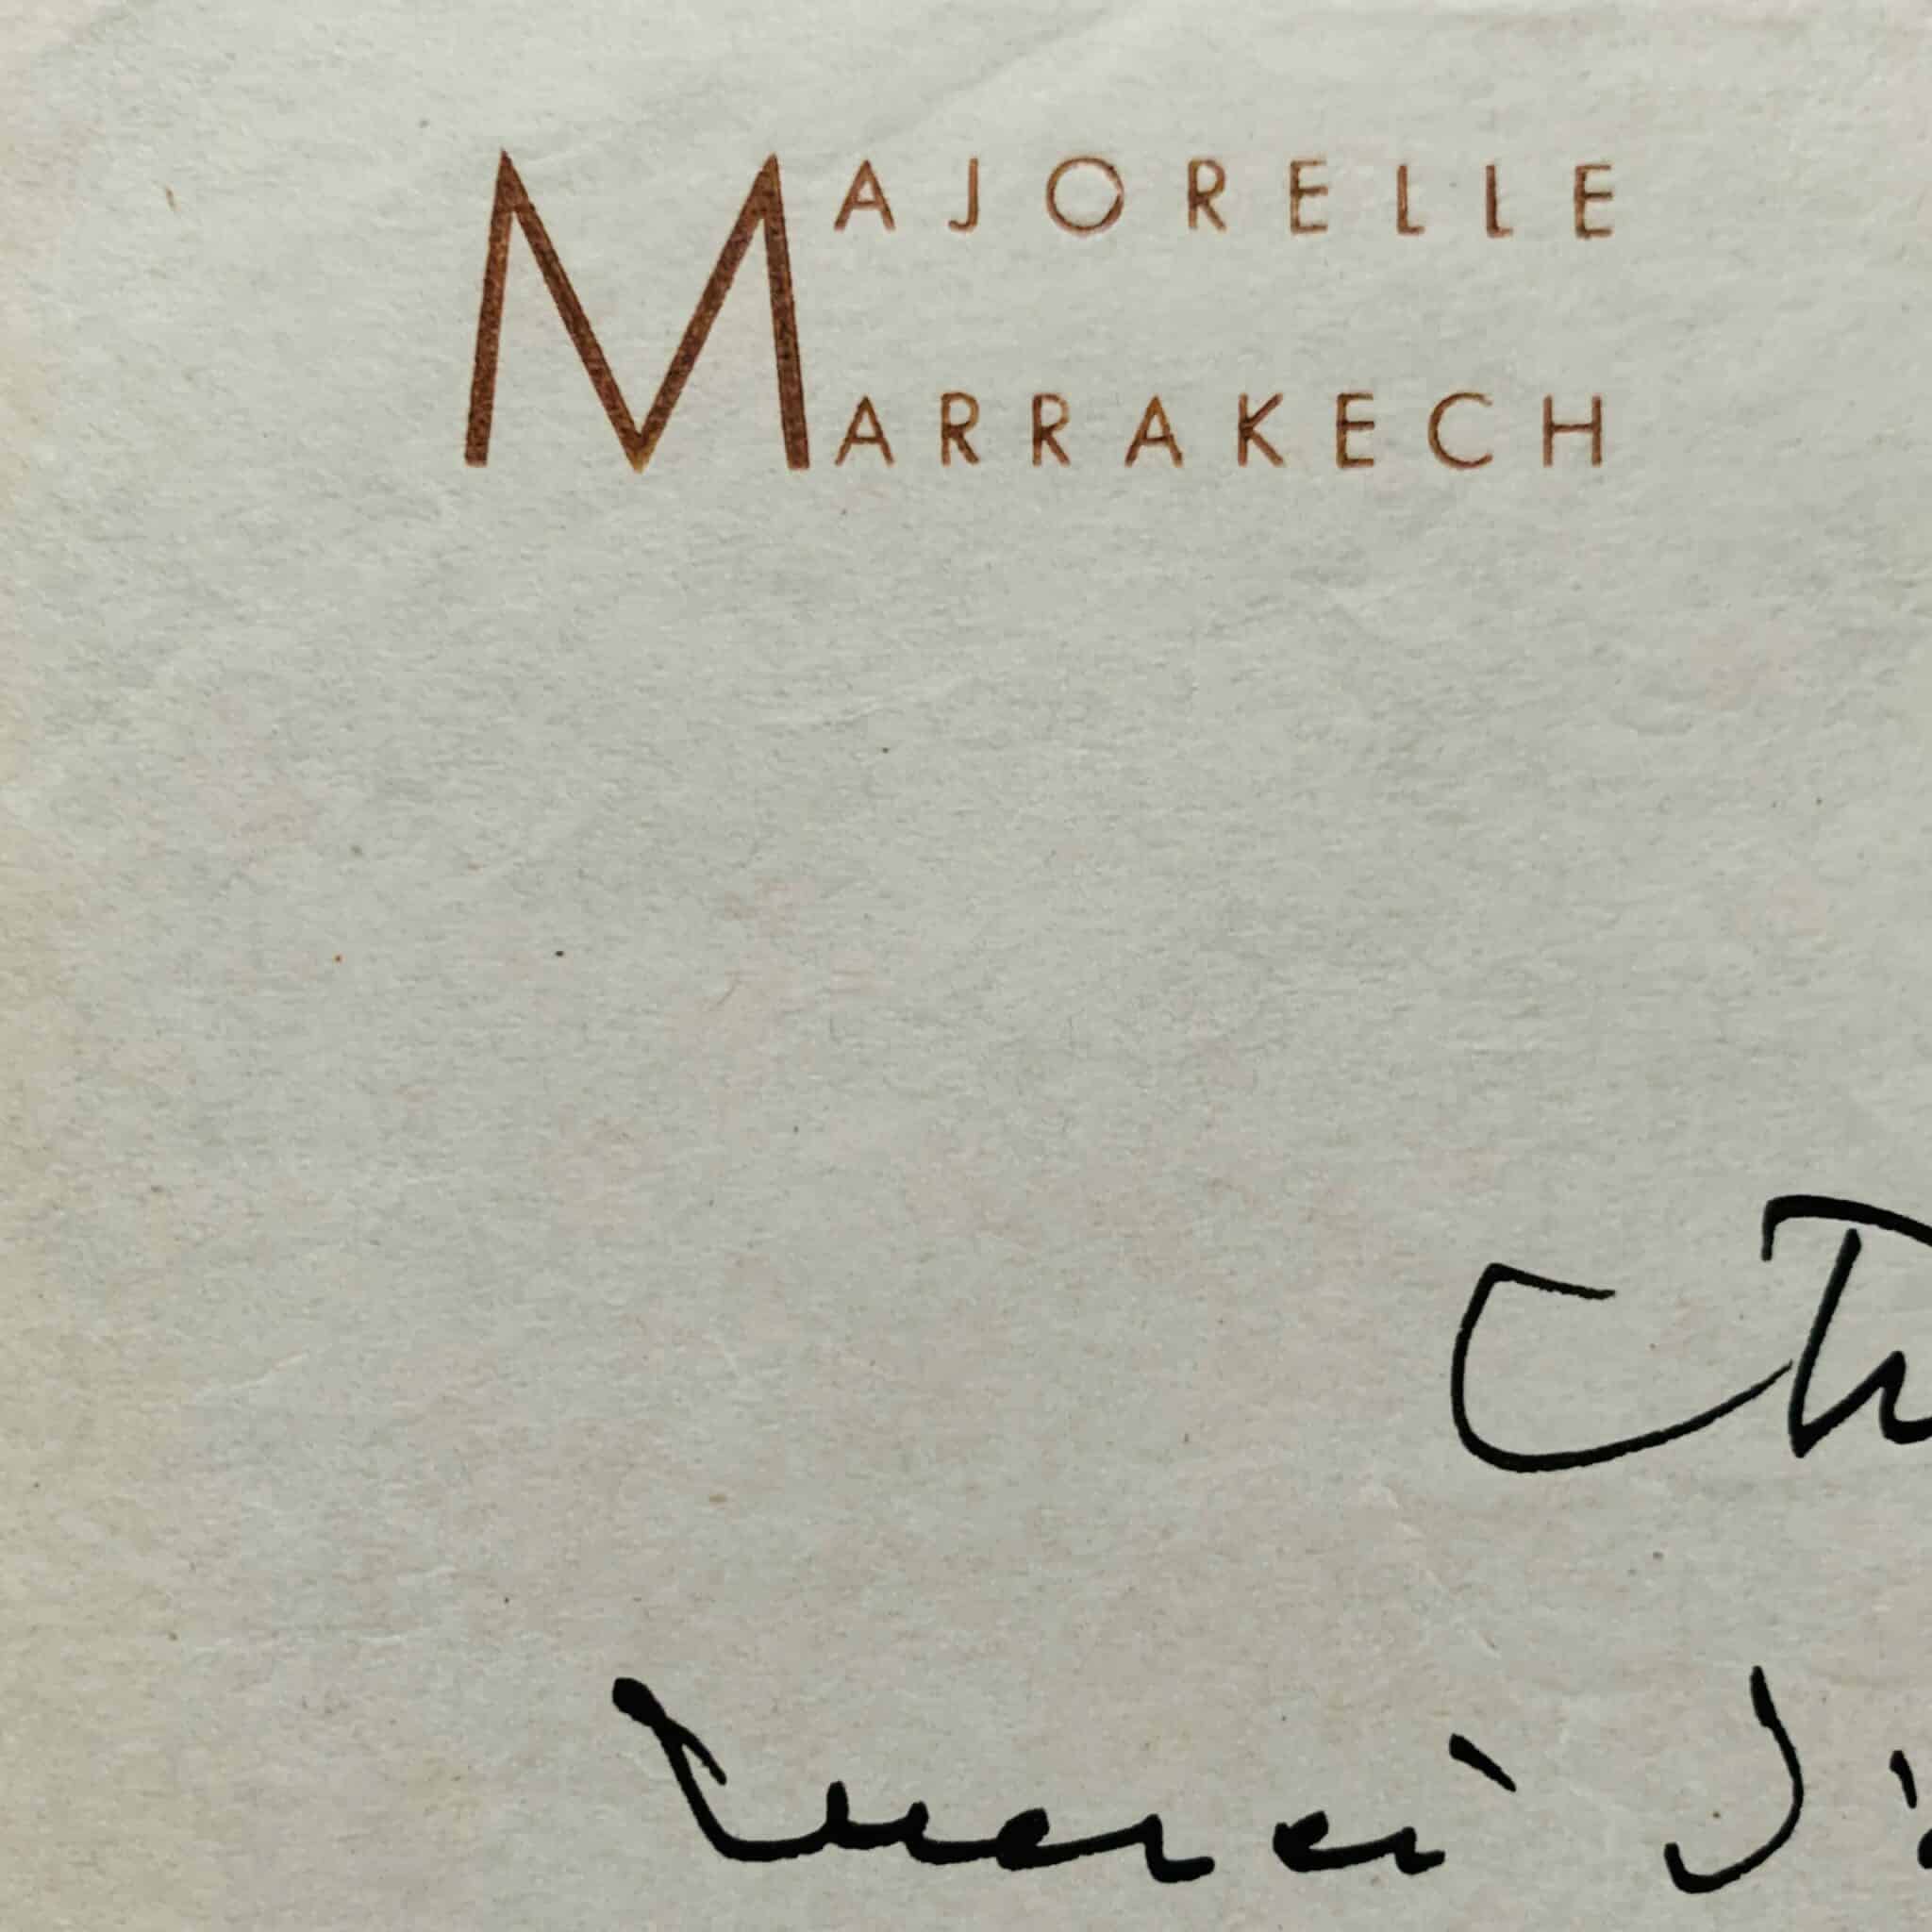 MAJORELLE
MARRAKECH
Ch
merci d'